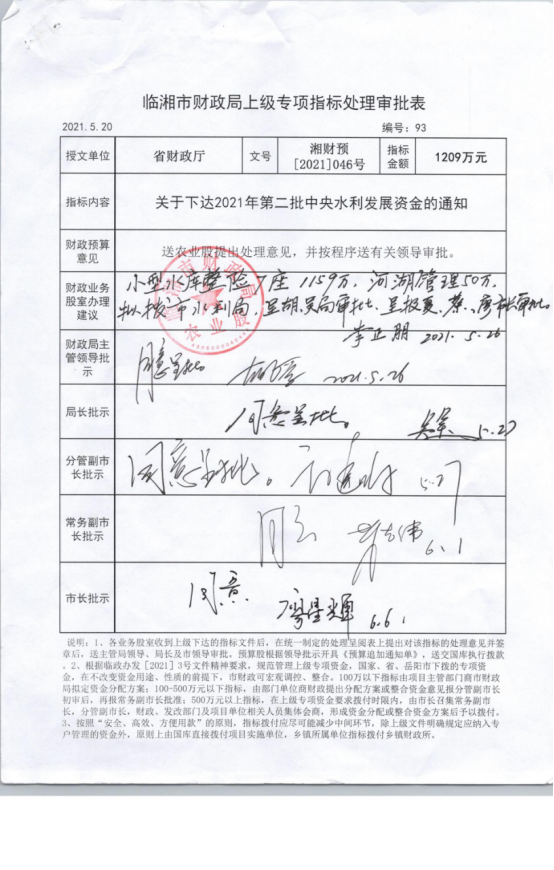 临湘市财政局上级专项指标处理审批表
2021.5.20 编号：93
授文单位 省财政厅 文号 湘财预[2021]046号 指标金额 1209万元
指标内容 关于下达2021年第二批中央水利发展资金的通知
财政预算意见 送农业股提出处理意见，并按程序送有关领导审批。
财政业务股室办理建议
小型水库整险7座1159万，河湖管理50万，
拟拨市水利局，呈胡、吴局审批、呈报夏、蔡、廖市长审批。
李正朋 2021.5.26
市财政局
农业股
财政局主管领导批示
呈批 2021.5.26
局长批示 同意呈批。 5.27
分管副市长批示 同意呈批。 5.27
常务副市长批示 同意 6.1
市长批示 同意 廖星辉 6.6.
说明：1、各业务股室收到上级下达的指标文件后，在统一制定的处理呈阅表上提出对该指标的处理意见并签
章后，送主管局领导、局长及市领导审批。预算股根据领导批示开具《预算追加通知单》，送交国库执行拨款
。2、根据临政办发［2021］3号文件精神要求，规范管理上级专项资金，国家、省、岳阳市下拨的专项资
金，在不改变资金用途、性质的前提下，市财政可宏观调控、整合。100万以下指标由项目主管部门商市财政
局拟定资金分配方案；100-500万元以下指标，由部门单位商财政提出分配方案或整合资金意见报分管副市长
初审后，再报常务副市长批准；500万元以上指标，在上级专项资金要求拨付时限内，由市长召集常务副市
长，分管副市长，财政、发改部门及项目单位相关人员集体会商，形成资金分配或整合资金方案后予以拨付。
3、按照“安全、高效、方便用款”的原则，指标拨付应尽可能减少中间环节，除上级文件明确规定应纳入专
户管理的资金外，原则上由国库直接拨付项目实施单位，乡镇所属单位指标拨付乡镇财政所。